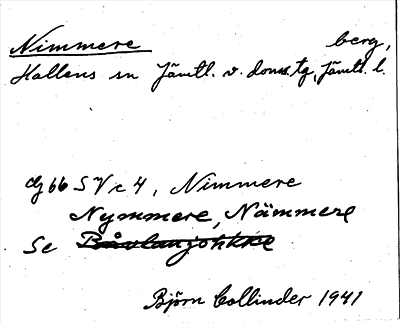 Nimmere berg,
Hallens sn Jämtl. v. doms.tg, Jämtl. l.
66 SV c 4, Nimmere
Nymmere, Nämmere
Se
Björn Collinder 1941